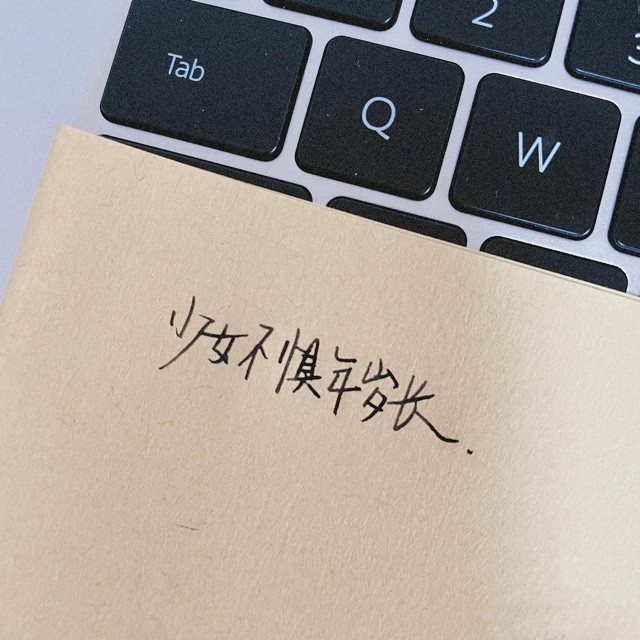 2
3
Tab Q W
少女不惧年岁长.